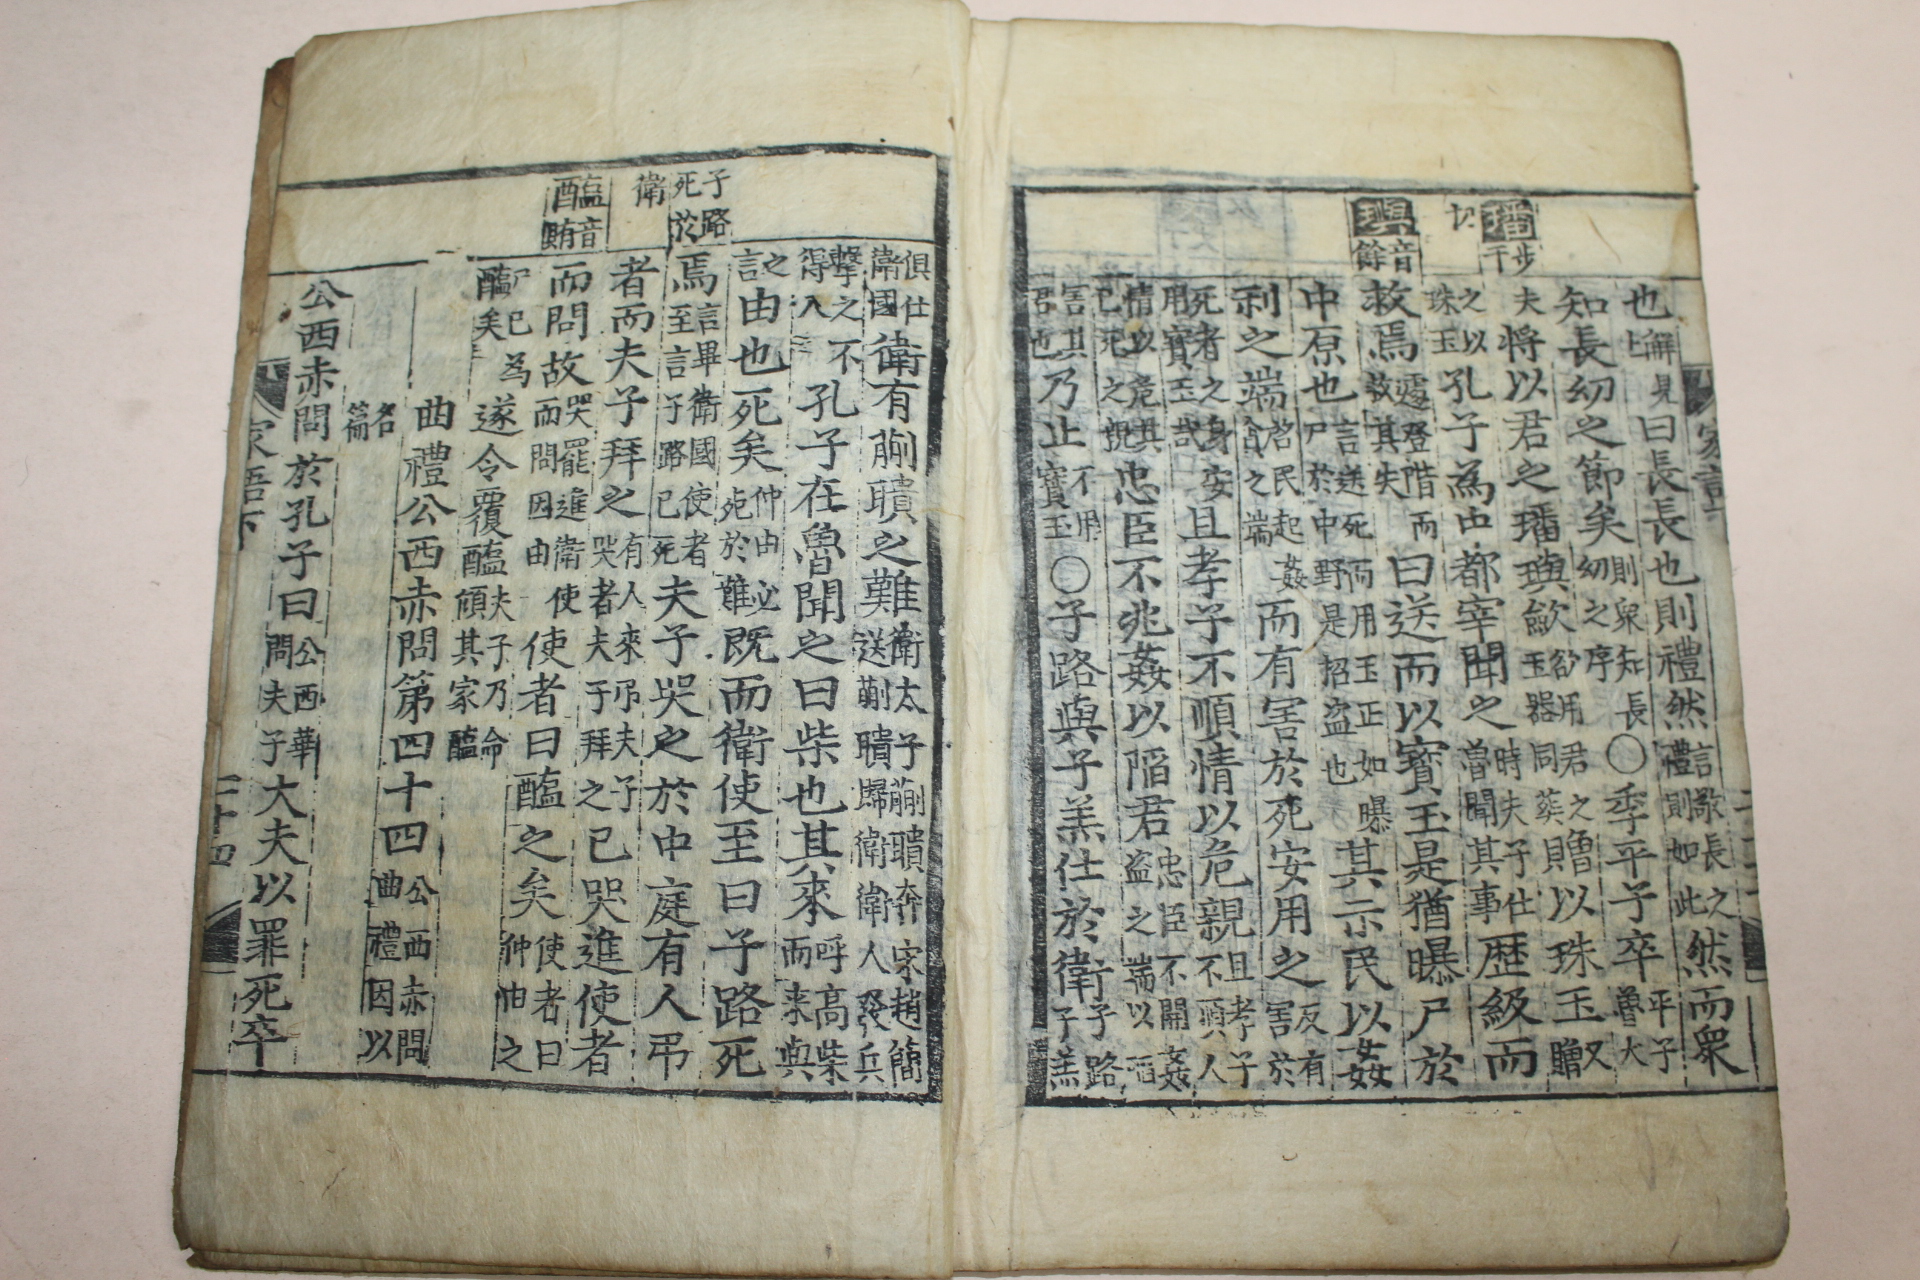 璠步干
切
璵音餘
也解見上曰長長也則禮然言敬長之禮則如此然而衆
知長幼之節矣則衆知長幼之序○季平子卒平子魯大
夫將以君之璠璵歛㕣用君之玉器同葬贈以珠玉又贈
之以珠玉孔子爲中都宰聞之時夫子仕魯聞其事歷級而
救焉遽登階而救其失曰送而以寶玉是猶曝尸於
中原也言送死而用玉正如曝尸於中野是招盜也其示民以姦
利之端啓民起姦貪之端而有害於死安用之反有害於
死者之身安用寶玉哉且孝子不順情以危親且孝子不順人
情以危其已死之親忠臣不兆姦以陷君忠臣不開姦盜之端以陷
害其君也乃止不用寶玉○子路與子羔仕於衛子路子羔
子路死於衛
醢音
䤅
俱仕衛國衛有蒯聵之難衛太子蒯聵奔宋趙簡送蒯聵歸衛衛人發兵
擊之不得入孔子在魯聞之曰柴也其來呼高柴而来與
之言由也死矣仲由必死於難既而衛使至曰子路死
焉言畢衛國使者至言子路已死夫子哭之於中庭有人弔
者而夫子拜之有人來弔夫子哭者夫子拜之已哭進使者
而問故哭罷進衛使而問因由使者曰醢之矣使者曰仲由之
尸已爲醢矣遂令覆醢夫子乃命傾其家醢
曲禮公西赤問第四十四公西赤問曲禮因以
名篇
公西赤問於孔子曰公西華問夫子大夫以罪死卒
家語下
二十四